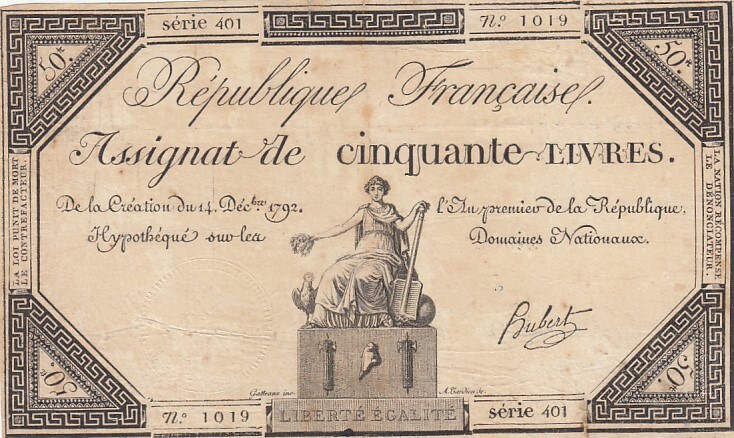 série 401 N.º 1019
50.ᵗ 50.ᵗ
République Française.
Assignat de cinquante LIVRES.
De la Création du 14. Décbre 1792. l'An premier de la République,
Hypothéqué sur les Domaines Nationaux.
LA LOI PUNIT DE MORT
LE CONTREFACTEUR.
LA NATION RÉCOMPENSE
LE DÉNONCIATEUR.
Hubert
50.ᵗ 50.ᵗ
Gatteaux inv. A. Tardieu sc.
N.º 1019 LIBERTÉ EGALITÉ série 401